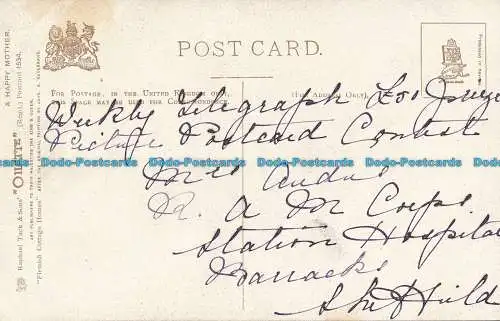 POST CARD.
FOR POSTAGE, IN THE UNITED KINGDOM ONLY,
THIS SPACE MAY BE USED FOR CORRESPONDENCE.
(FOR ADDRESS ONLY).
Weekly Telegraph £500
Picture Postcard Contest
Mrs
R. A M Corps
Station Hospital
Barracks
Sheffield
A HAPPY MOTHER.
Raphael Tuck & Sons' "OILETTE" (Regd.) Postcard 1534.
ART PUBLISHERS TO THEIR MAJESTIES THE KING & QUEEN.
"Flemish Cottage Homes"
Dodo-Postcards Dodo-Postcards Dodo-Postcards Dodo-Postcards Dodo-Postcards Dodo-Postcards